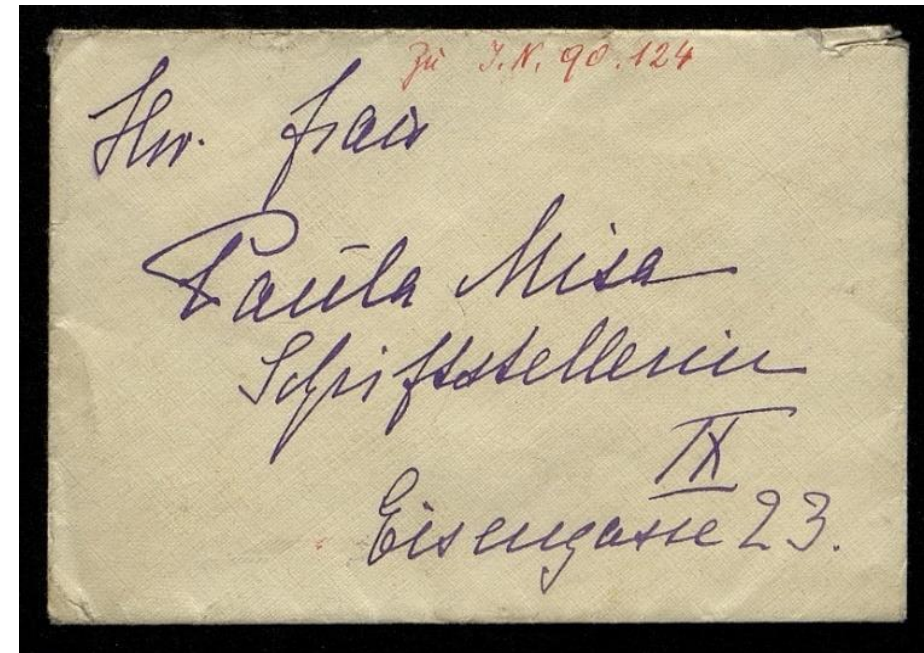 Zu I.N. 90.124
Hw. Frau
Paula Misa
Schriftstellerin
IX
Eisengasse 23.